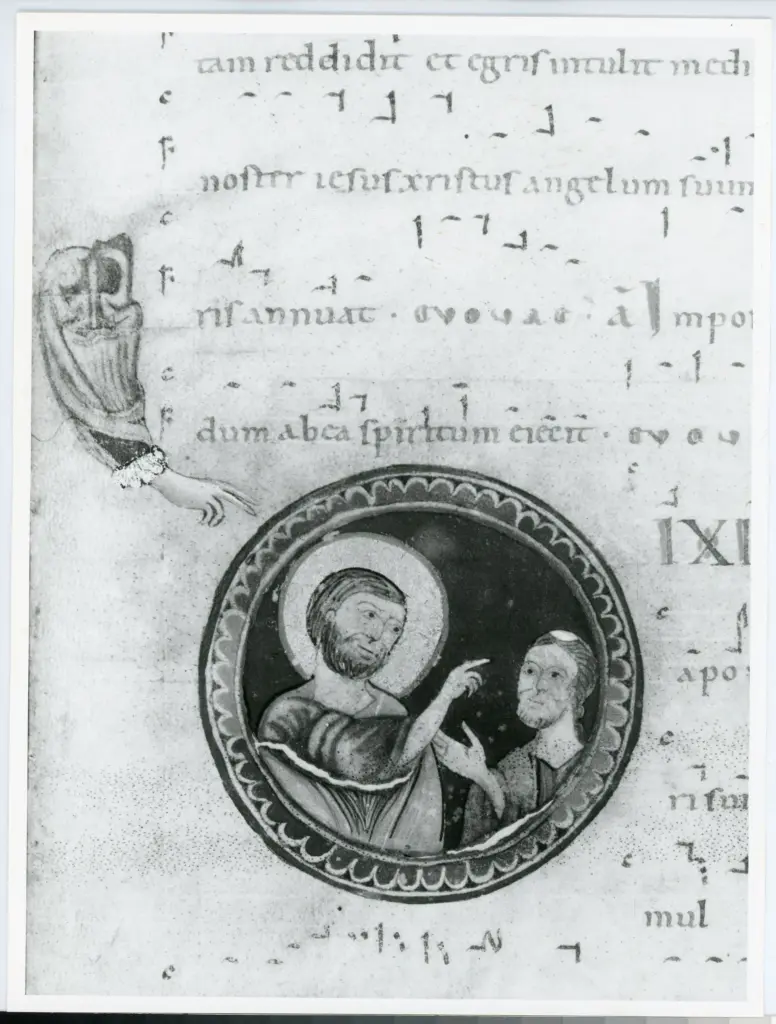 tam reddidit et egris intulit medi
noster iesus xristus angelum suum
ris annuat · evovae · a Impo
dum abea spiritum eiecit · evov
IXI
apo
risun
mul